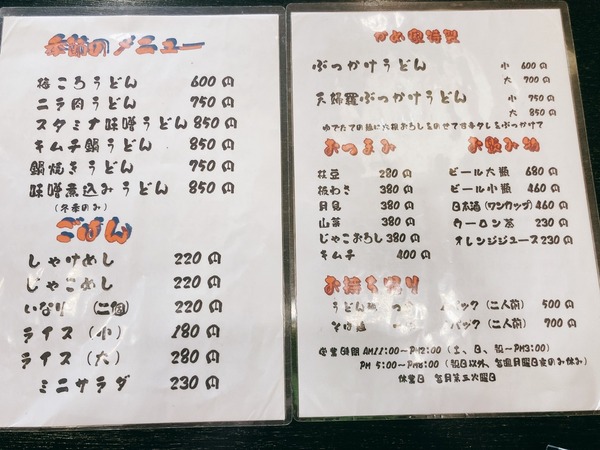 季節のメニュー
梅ころうどん 600円
ニラ肉うどん 750円
スタミナ味噌うどん 850円
キムチ鍋うどん 850円
鍋焼きうどん 850円
味噌煮込みうどん 850円
(冬季のみ)
ごはん
しゃけめし 220円
じゃこめし 220円
いなり (二個) 220円
ライス(小) 180円
ライス(大) 280円
ミニサラダ 230円
かめ家特製
ぶっかけうどん 小 600円
大 700円
天婦羅ぶっかけうどん 小 750円
大 850円
ゆでたての麺に大根おろしをのせて旨辛タレをぶっかけて
おつまみ
枝豆 280円
板わさ 380円
月見 380円
山菜 380円
じゃこおろし 380円
キムチ 400円
お飲み物
ビール大瓶 680円
ビール小瓶 460円
日本酒(ワンカップ) 460円
ウーロン茶 230円
オレンジジュース 230円
お持ち帰り
うどん パック(二人前) 500円
そば パック(二人前) 700円
営業時間 AM11:00~PM2:00 (土、日、祝~PM3:00)
PM 5:00~PM8:00 (祝日以外、毎週月曜日夜のみ休み)
休業日 毎月第三火曜日